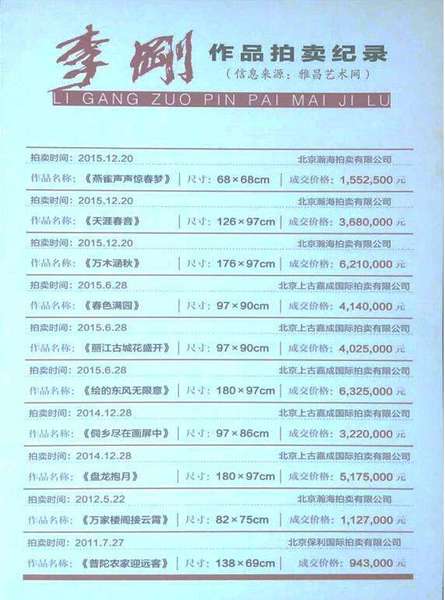 李刚 作品拍卖纪录
（信息来源：雅昌艺术网）
LI GANG ZUO PIN PAI MAI JI LU
拍卖时间：2015.12.20 北京瀚海拍卖有限公司
作品名称：《燕雀声声惊春梦》 尺寸：68×68cm 成交价格：1,552,500 元
拍卖时间：2015.12.20 北京瀚海拍卖有限公司
作品名称：《天涯春音》 尺寸：126×97cm 成交价格：3,680,000 元
拍卖时间：2015.12.20 北京瀚海拍卖有限公司
作品名称：《万木涵秋》 尺寸：176×97cm 成交价格：6,210,000 元
拍卖时间：2015.6.28 北京上古嘉成国际拍卖有限公司
作品名称：《春色满园》 尺寸：97×90cm 成交价格：4,140,000 元
拍卖时间：2015.6.28 北京上古嘉成国际拍卖有限公司
作品名称：《丽江古城花盛开》 尺寸：97×90cm 成交价格：4,025,000 元
拍卖时间：2015.6.28 北京上古嘉成国际拍卖有限公司
作品名称：《绘的东风无限意》 尺寸：180×97cm 成交价格：6,325,000 元
拍卖时间：2014.12.28 北京上古嘉成国际拍卖有限公司
作品名称：《侗乡尽在画屏中》 尺寸：97×86cm 成交价格：3,220,000 元
拍卖时间：2014.12.28 北京上古嘉成国际拍卖有限公司
作品名称：《盘龙抱月》 尺寸：180×97cm 成交价格：5,175,000 元
拍卖时间：2012.5.22 北京瀚海拍卖有限公司
作品名称：《万家楼阁接云霄》 尺寸：82×75cm 成交价格：1,127,000 元
拍卖时间：2011.7.27 北京保利国际拍卖有限公司
作品名称：《普陀农家迎远客》 尺寸：138×69cm 成交价格：943,000 元